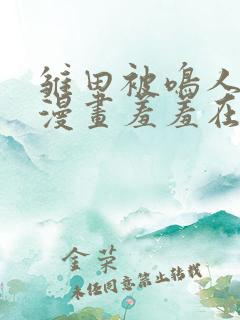 雏田被鸣人
漫畫羞羞在
金荣
未经同意禁止转载